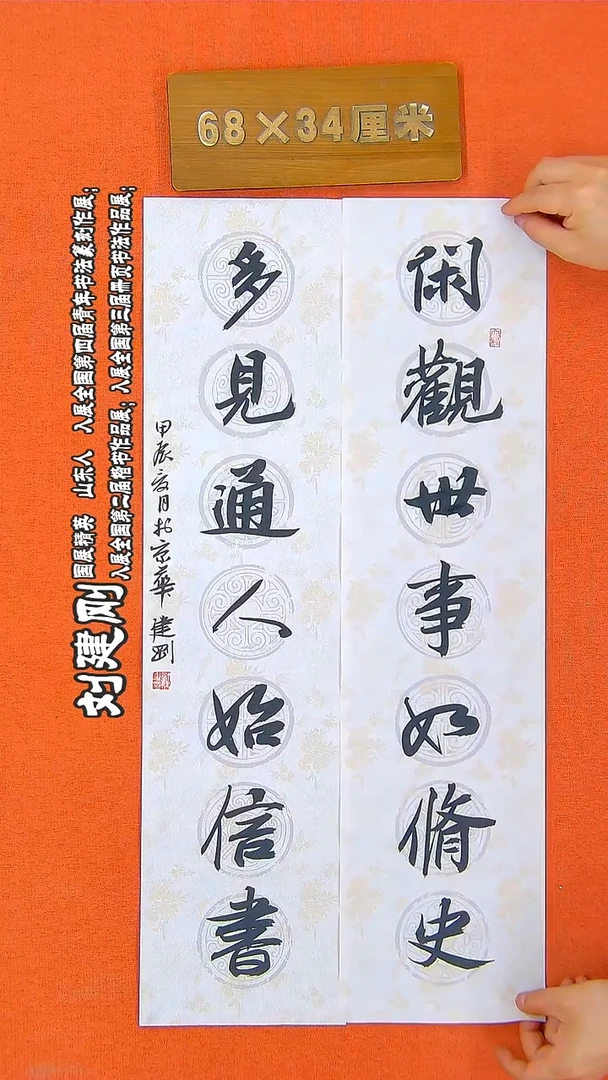 68×34厘米
閑觀世事如脩史
多見通人始信書
甲辰夏月於京華 建剛
刘建刚
国展精英 山东人 入展全国第四届青年书法篆刻作展；
入展全国第二届楷书作品展；入展全国第三届册页书法作品展；